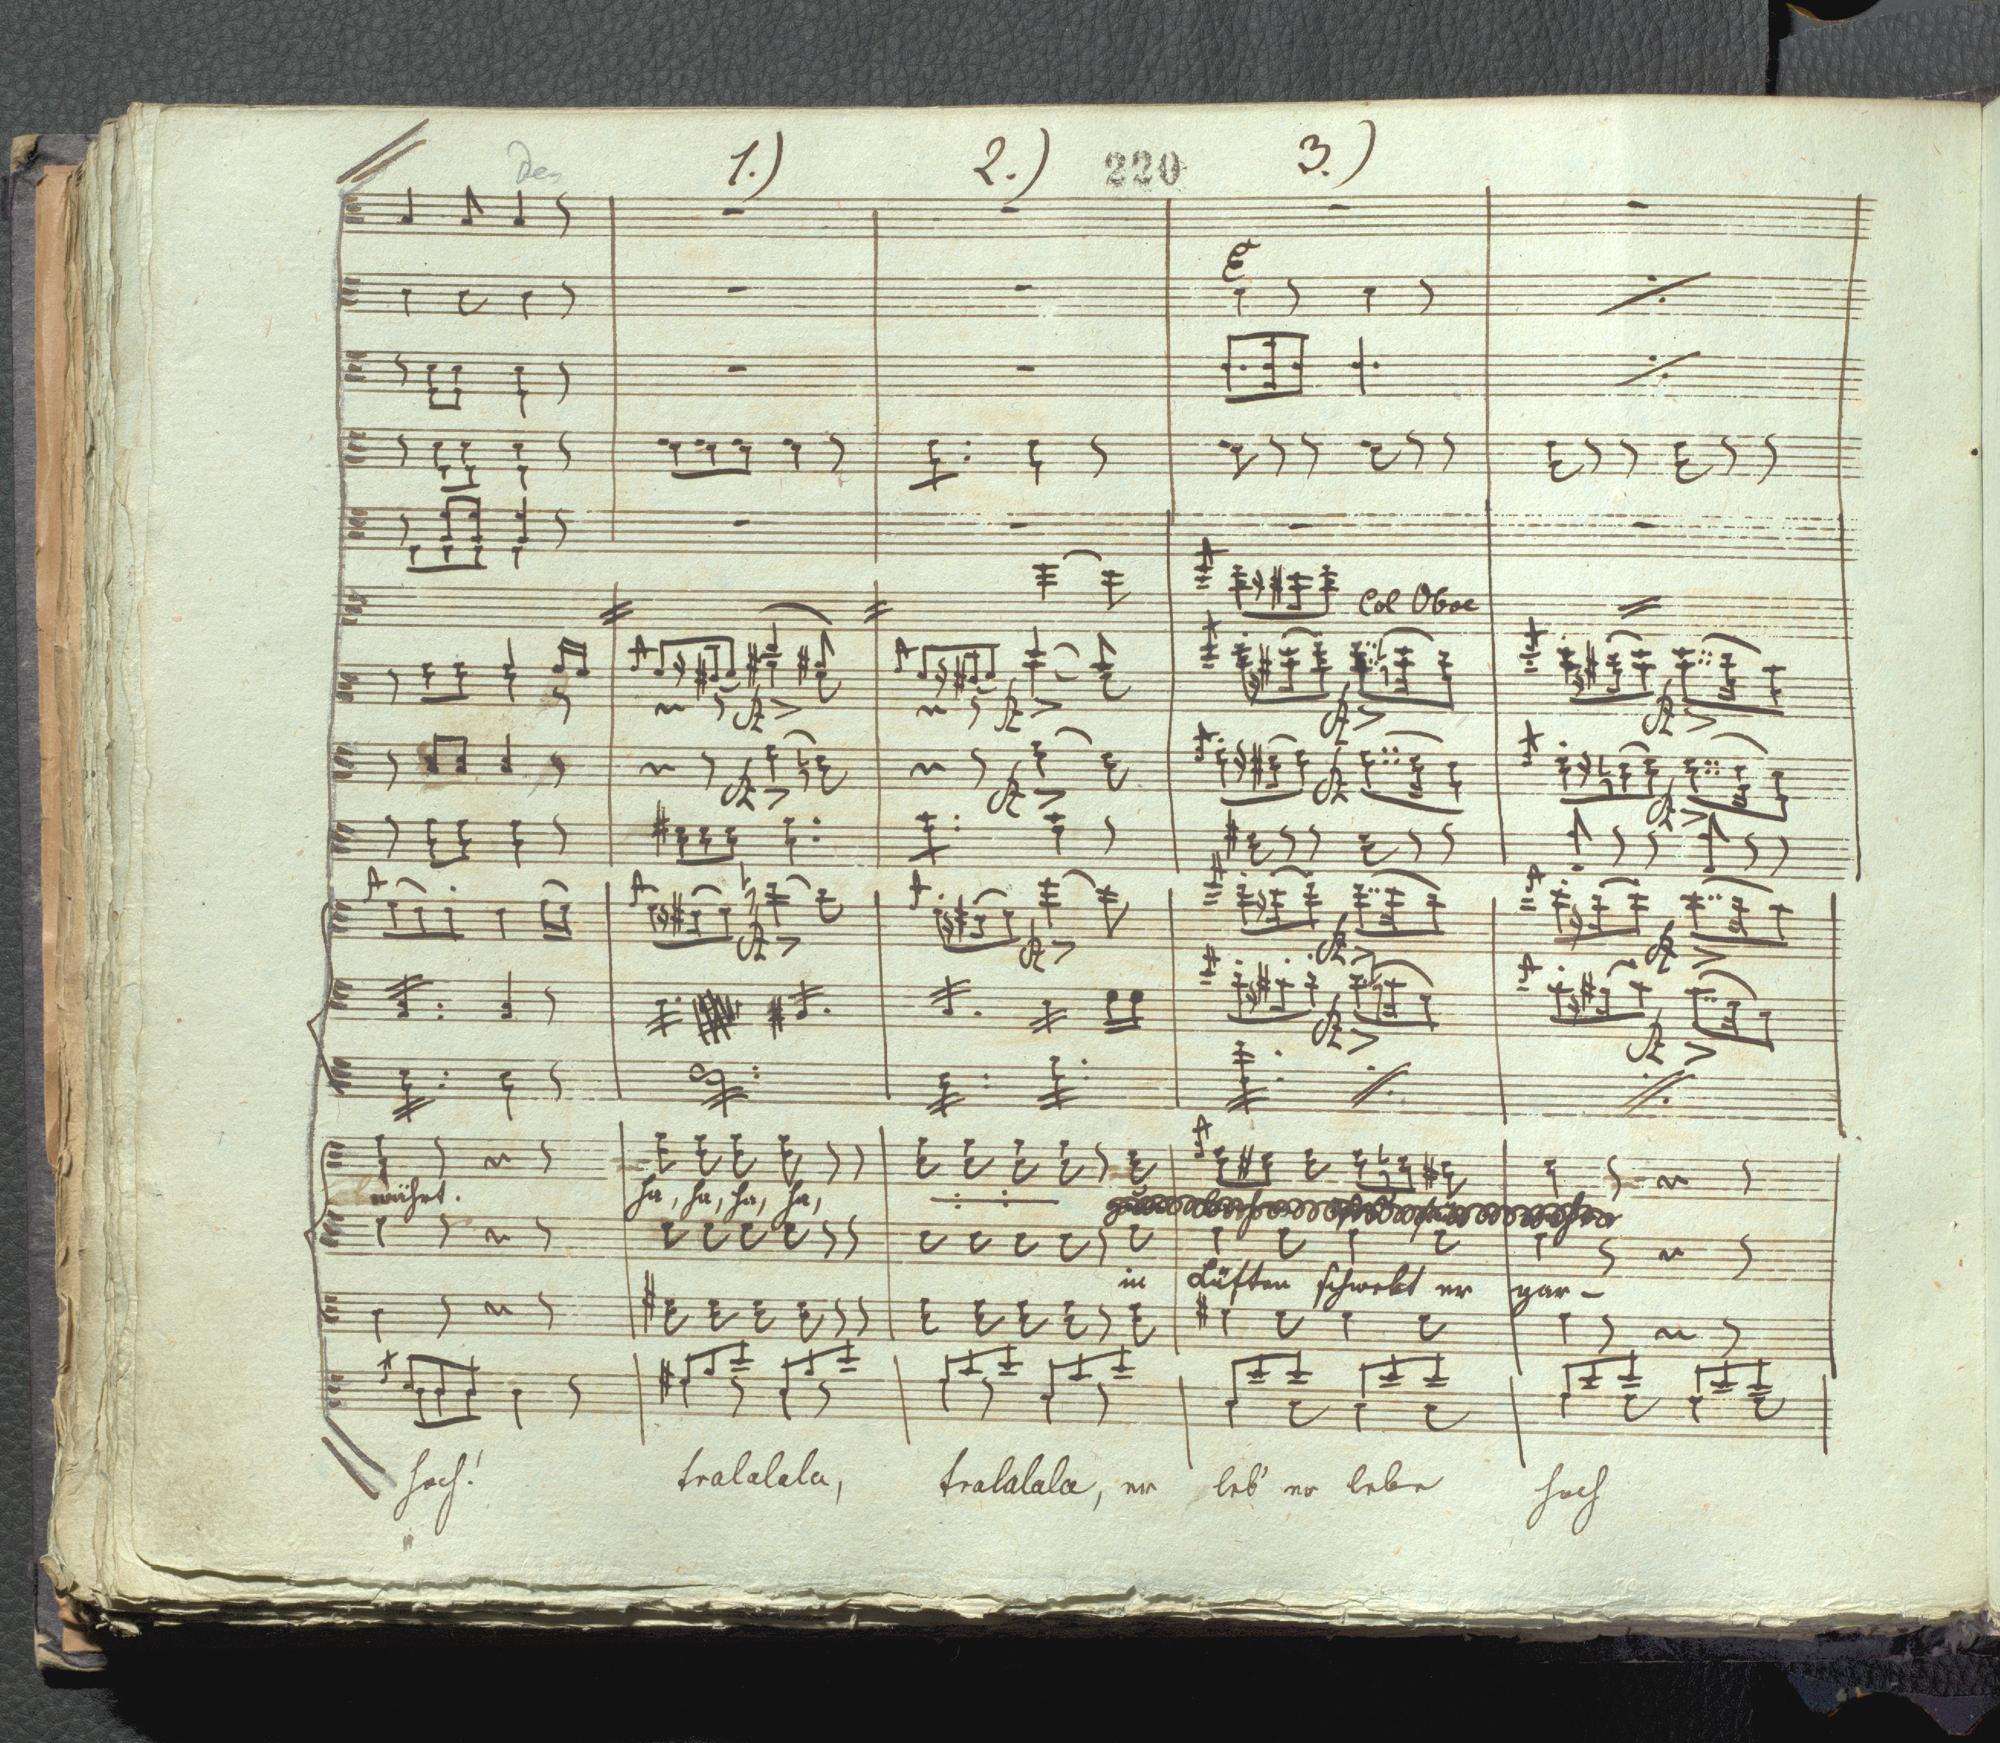 1.) 2.) 220 3.)
Col Oboe
währt. ha, ha, ha, ha,
in Lüften schwebt er gar -
hoch! tralalala, tralalala, er leb' er lebe hoch